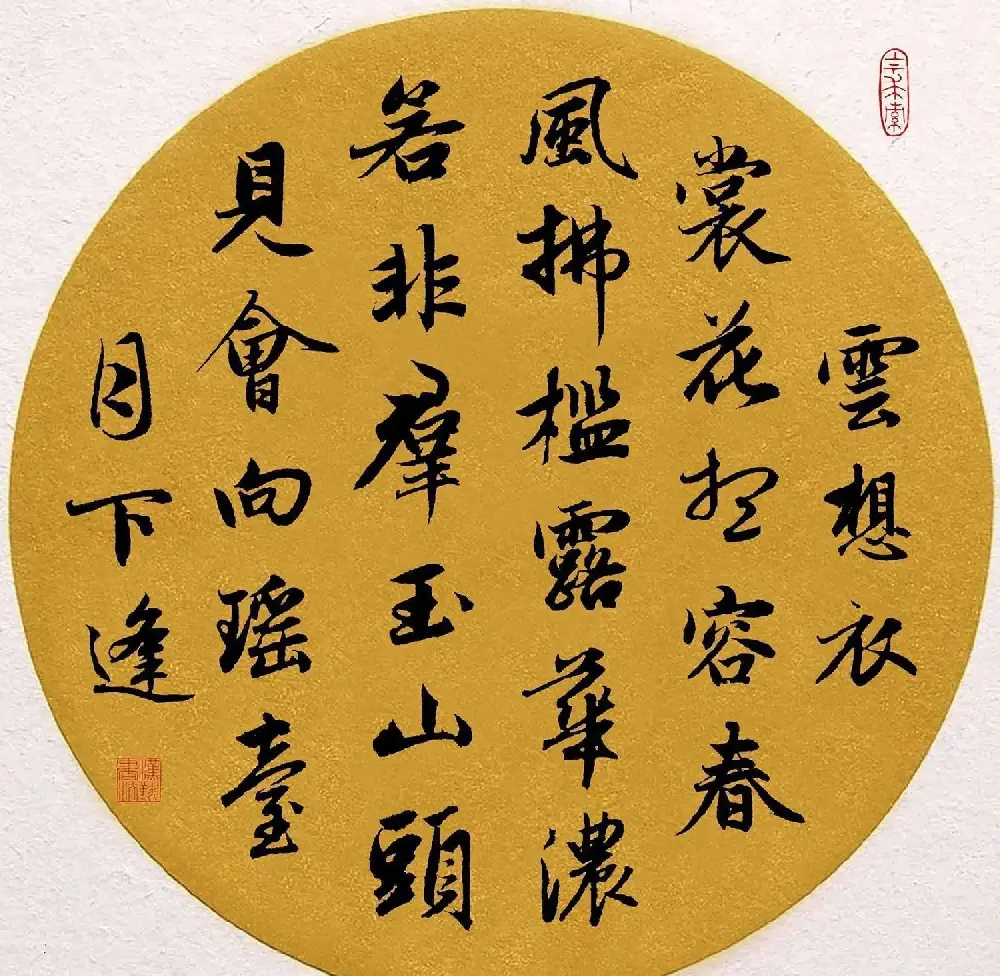 雲想衣
裳花想容春
風拂檻露華濃
若非羣玉山頭
見會向瑤臺
月下逢